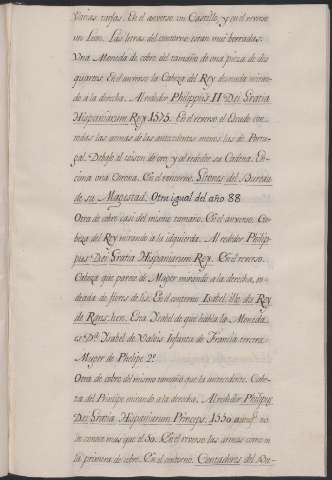 varias rarfas. En el anverso un Castillo, y en el reverso
un Leon. Las letras del contorno están muy borradas.
Una Moneda de cobre del tamaño de una pieza de dos
quartos. En el anverso la Cabeza del Rey desnuda miran-
do a la derecha. Alrededor Philippus II Dei Gratia
Hispaniarum Rex 1575. En el reverso el Escudo con
todas las armas de las antecedentes menos las de Portu-
gal. Debajo el toison de oro, y al rededor su Cadena. En-
cima una Corona. En el contorno. Gitones del Bureau
de su Magestad. Otra igual del año 88
Otra de cobre casi del mismo tamaño. En el anverso. Ca-
beza del Rey mirando a la izquierda. Al rededor Philip-
pus Dei Gratia Hispaniarum Rex. En el reverso.
Cabeza que parece de Muger mirando a la derecha, ro-
deada de flores de lis. En el contorno Isabel
Esta Isabel de que habla la Moneda
es Dª Isabel de Valois Infanta de Francia tercera
Muger de Phelipe 2º
Otra de cobre del mismo tamaño que la antecedente. Cabe-
za del Principe mirando a la derecha. Alrededor Philippus
Dei Gratia Hispaniarum Princeps. 1550 aunqe no
se conoce mas que el 50. En el reverso las armas como en
la primera de cobre. En el contorno. Contadores del Bu-